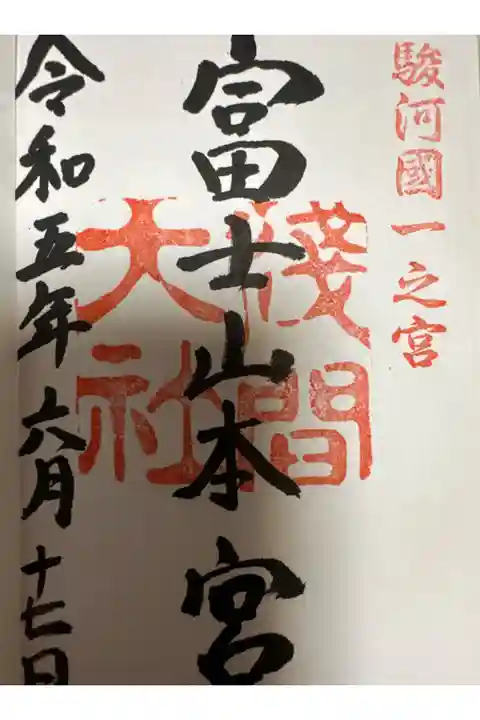 駿河國一之宮
冨士山本宮
淺間
大社
令和五年六月十七日